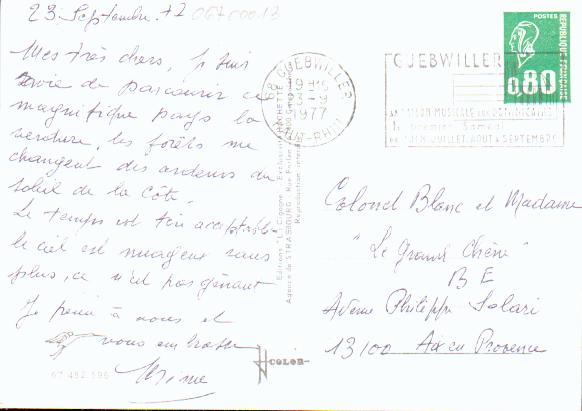 23 Septembre 77
06700013
Mes très chers, je suis
ravie de parcourir ce
magnifique pays la
verdure, les forêts me
changent des ardeurs du
soleil de la Côte.
Le temps est bien acceptable
le ciel est nuageux sans
plus, ce n'est pas gênant
Je pense à vous et
vous embrasse
67 482 596
COLOR
Editions "La Cigogne"
Agence de STRASBOURG
Reproduction interdite
68 GUEBWILLER
1977
HAUT-RHIN
GUEBWILLER
SAISON MUSICALE AUX DOMINICAINS
1er premier Samedi
JUILLET, AOUT & SEPTEMBRE
POSTES
RÉPUBLIQUE FRANÇAISE
0,80
Colonel Blanc et Madame
"Le Grand Chêne"
B E
Avenue Philippe Solari
13100 Aix en Provence